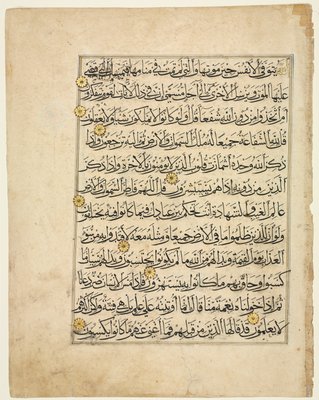 الله يتوفى الأنفس حين موتها والتي لم تمت في منامها فيمسك التي قضى
عليها الموت ويرسل الأخرى إلى أجل مسمى إن في ذلك لآيات لقوم يتفكرون
أم اتخذوا من دون الله شفعاء قل أولو كانوا لا يملكون شيئا ولا يعقلون
قل لله الشفاعة جميعا له ملك السموات والأرض ثم إليه ترجعون وإذا
ذكر الله وحده اشمأزت قلوب الذين لا يؤمنون بالآخرة وإذا ذكر
الذين من دونه إذا هم يستبشرون قل اللهم فاطر السموات والأرض
عالم الغيب والشهادة أنت تحكم بين عبادك فيما كانوا فيه يختلفون
ولو أن للذين ظلموا ما في الأرض جميعا ومثله معه لافتدوا به من سوء
العذاب يوم القيمة وبدا لهم من الله ما لم يكونوا يحتسبون وبدا لهم سيئات ما
كسبوا وحاق بهم ما كانوا به يستهزؤن فإذا مس الإنسان ضر دعانا
ثم إذا خولناه نعمة منا قال إنما أوتيته على علم بل هي فتنة ولكن أكثرهم
لا يعلمون قد قالها الذين من قبلهم فما أغنى عنهم ما كانوا يكسبون